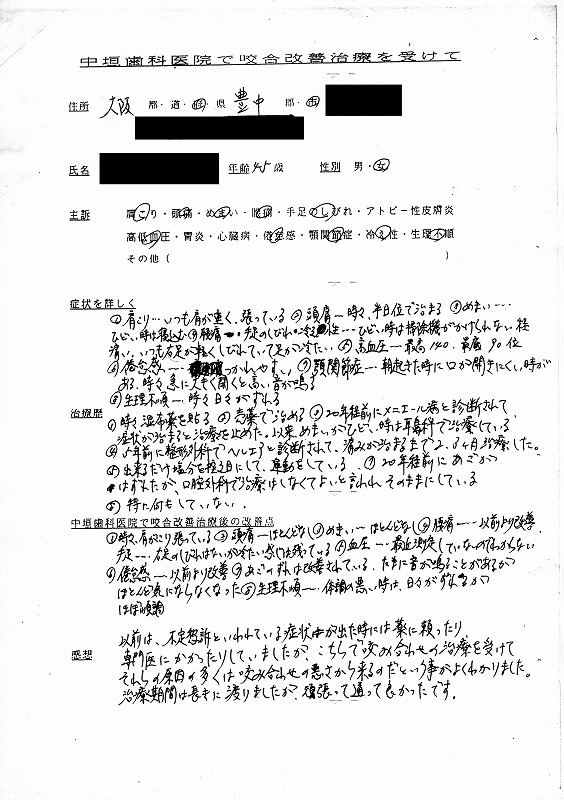 中垣歯科医院で咬合改善治療を受けて
住所 大阪 都・道・府・県 豊中 郡・市
氏名 年齢 45歳 性別 男・女
主訴 肩こり・頭痛・めまい・腰痛・手足のしびれ・アトピー性皮膚炎
高低血圧・胃炎・心臓病・倦怠感・顎関節症・冷え性・生理不順
その他（ ）
症状を詳しく
①肩こり…いつも肩が重く、張っている ②頭痛〜時々、半日位で治まる ③めまい…
ひどい時は寝込む ④腰痛 手足のしびれ・冷え性…ひどい時は掃除機がかけられない程
痛い、いつも右足が軽くしびれていて足がつめたい ⑤高血圧〜最高140、最低90位
⑥倦怠感〜 つかれやすい ⑦顎関節症〜朝起きた時に口が開きにくい時が
ある、時々急に大きく開くと高い音が鳴る
⑧生理不順〜時々日々がずれる
治療歴
①時々湿布薬を貼る ②売薬で治める ③20年程前にメニエール病と診断されて
症状が治まると治療を止めた。以来めまいがひどい時は耳鼻科で治療している
④5年前に整形外科でヘルニアと診断されて、痛みが治まるまで2、3ヶ月治療した。
⑤出来るだけ塩分を控え目にして、運動をしている ⑦20年程前にあごが
はずれたが、口腔外科で治療はしなくてよいと言われ、そのままにしている
⑧特に何もしていない。
中垣歯科医院で咬合改善治療後の改善点
①時々、肩がこり張っている ②頭痛〜ほとんどなし ③めまい〜ほとんどなし ④腰痛…以前より改善
手足…右足のしびれはないがつめたい感じは残っている ⑤血圧〜最近測定していないのでわからない
⑥倦怠感〜以前より改善 ⑦あごのずれは改善されている、たまに音が鳴ることがあるが
ほとんど気にならなくなった ⑧生理不順〜体調の悪い時は、日々がずれるが
ほぼ順調
感想
以前は、不定愁訴といわれている症状が出た時には薬に頼ったり
専門医にかかったりしていましたが、こちらで咬み合わせの治療を受けて
それらの原因の多くは咬み合わせの悪さから来るのだという事がよくわかりました。
治療期間は長きに渡りましたが、頑張って通って良かったです。